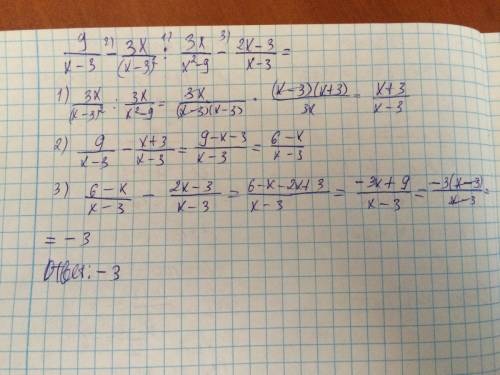 9/(x-3) ²⁾- 3x/(x-3)² ¹⁾: 3x/(x²-9) ³⁾- (2x-3)/(x-3) =
1) 3x/(x-3)² : 3x/(x²-9) = 3x/((x-3)(x-3)) · ((x-3)(x+3))/3x = (x+3)/(x-3)
2) 9/(x-3) - (x+3)/(x-3) = (9-x-3)/(x-3) = (6-x)/(x-3)
3) (6-x)/(x-3) - (2x-3)/(x-3) = (6-x-2x+3)/(x-3) = (-3x+9)/(x-3) = (-3(x-3))/(x-3) =
= -3
Ответ: -3